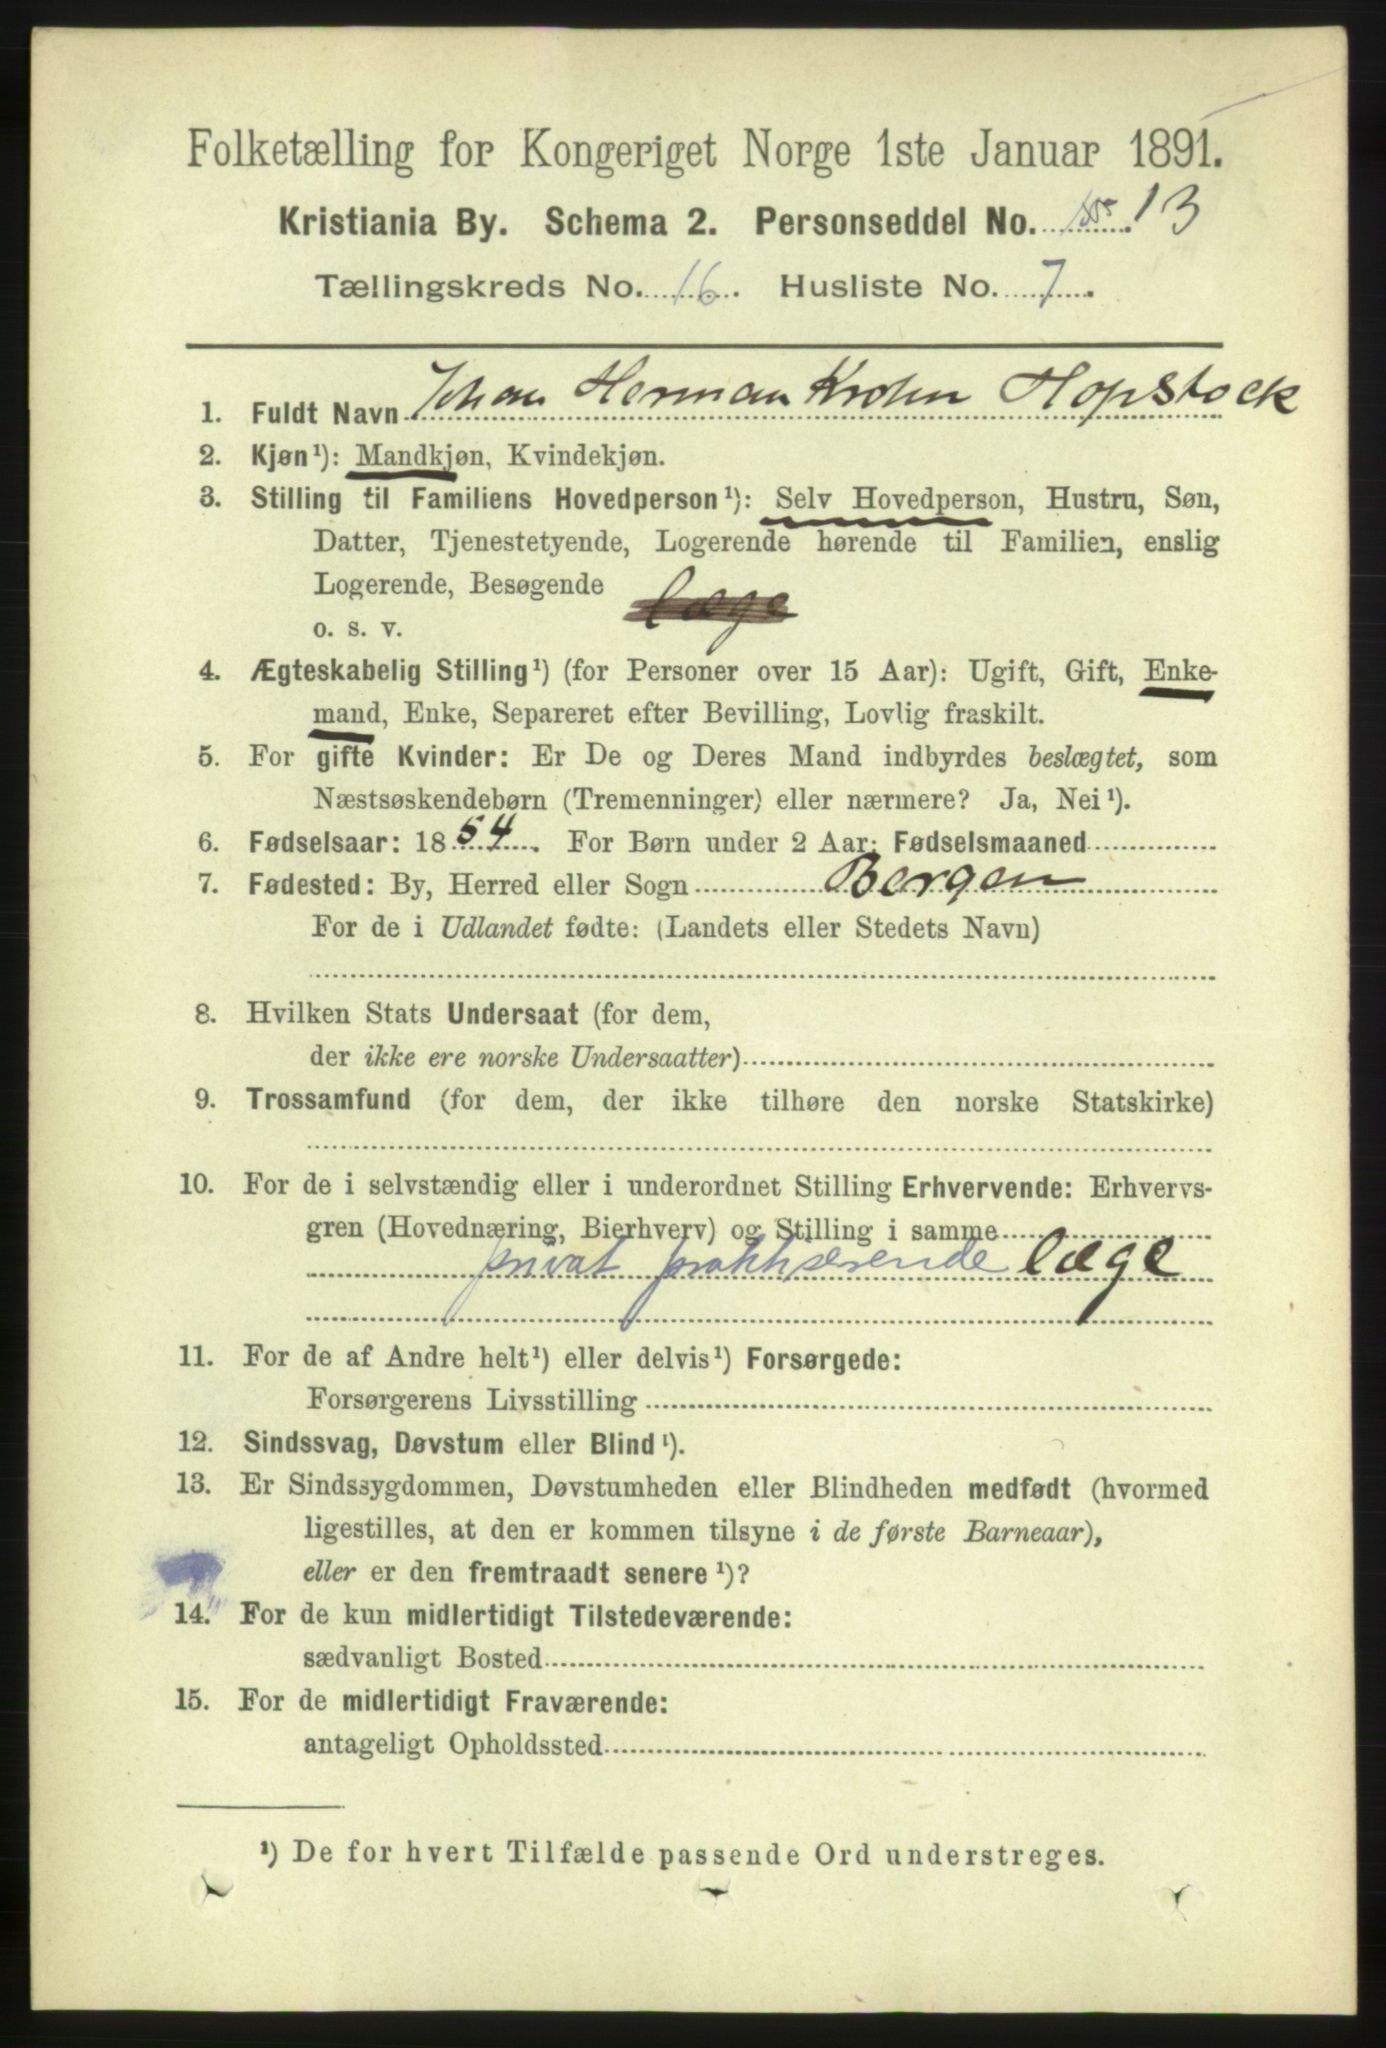 Folketælling for Kongeriget Norge 1ste Januar 1891.
Kristiania By. Schema 2. Personseddel No. 13
Tællingskreds No. 16. Husliste No. 7.
1. Fuldt Navn Johan Herman Krohn Hopstock
2. Kjøn¹): Mandkjøn, Kvindekjøn.
3. Stilling til Familiens Hovedperson¹): Selv Hovedperson, Hustru, Søn,
Datter, Tjenestetyende, Logerende hørende til Familien, enslig
Logerende, Besøgende
læge
o. s. v.
4. Ægteskabelig Stilling¹) (for Personer over 15 Aar): Ugift, Gift, Enke-
mand, Enke, Separeret efter Bevilling, Lovlig fraskilt.
5. For gifte Kvinder: Er De og Deres Mand indbyrdes beslægtet, som
Næstsøskendebørn (Tremenninger) eller nærmere? Ja, Nei¹).
6. Fødselsaar: 1854. For Børn under 2 Aar: Fødselsmaaned
7. Fødested: By, Herred eller Sogn Bergen
For de i Udlandet fødte: (Landets eller Stedets Navn)
8. Hvilken Stats Undersaat (for dem,
der ikke ere norske Undersaatter)
9. Trossamfund (for dem, der ikke tilhøre den norske Statskirke)
10. For de i selvstændig eller i underordnet Stilling Erhvervende: Erhvervs-
gren (Hovednæring, Bierhverv) og Stilling i samme
privat praktiserende læge
11. For de af Andre helt¹) eller delvis¹) Forsørgede:
Forsørgerens Livsstilling
12. Sindssvag, Døvstum eller Blind¹).
13. Er Sindssygdommen, Døvstumheden eller Blindheden medfødt (hvormed
ligestilles, at den er kommen tilsyne i de første Barneaar),
eller er den fremtraadt senere¹)?
14. For de kun midlertidigt Tilstedeværende:
sædvanligt Bosted
15. For de midlertidigt Fraværende:
antageligt Opholdssted
¹) De for hvert Tilfælde passende Ord understreges.